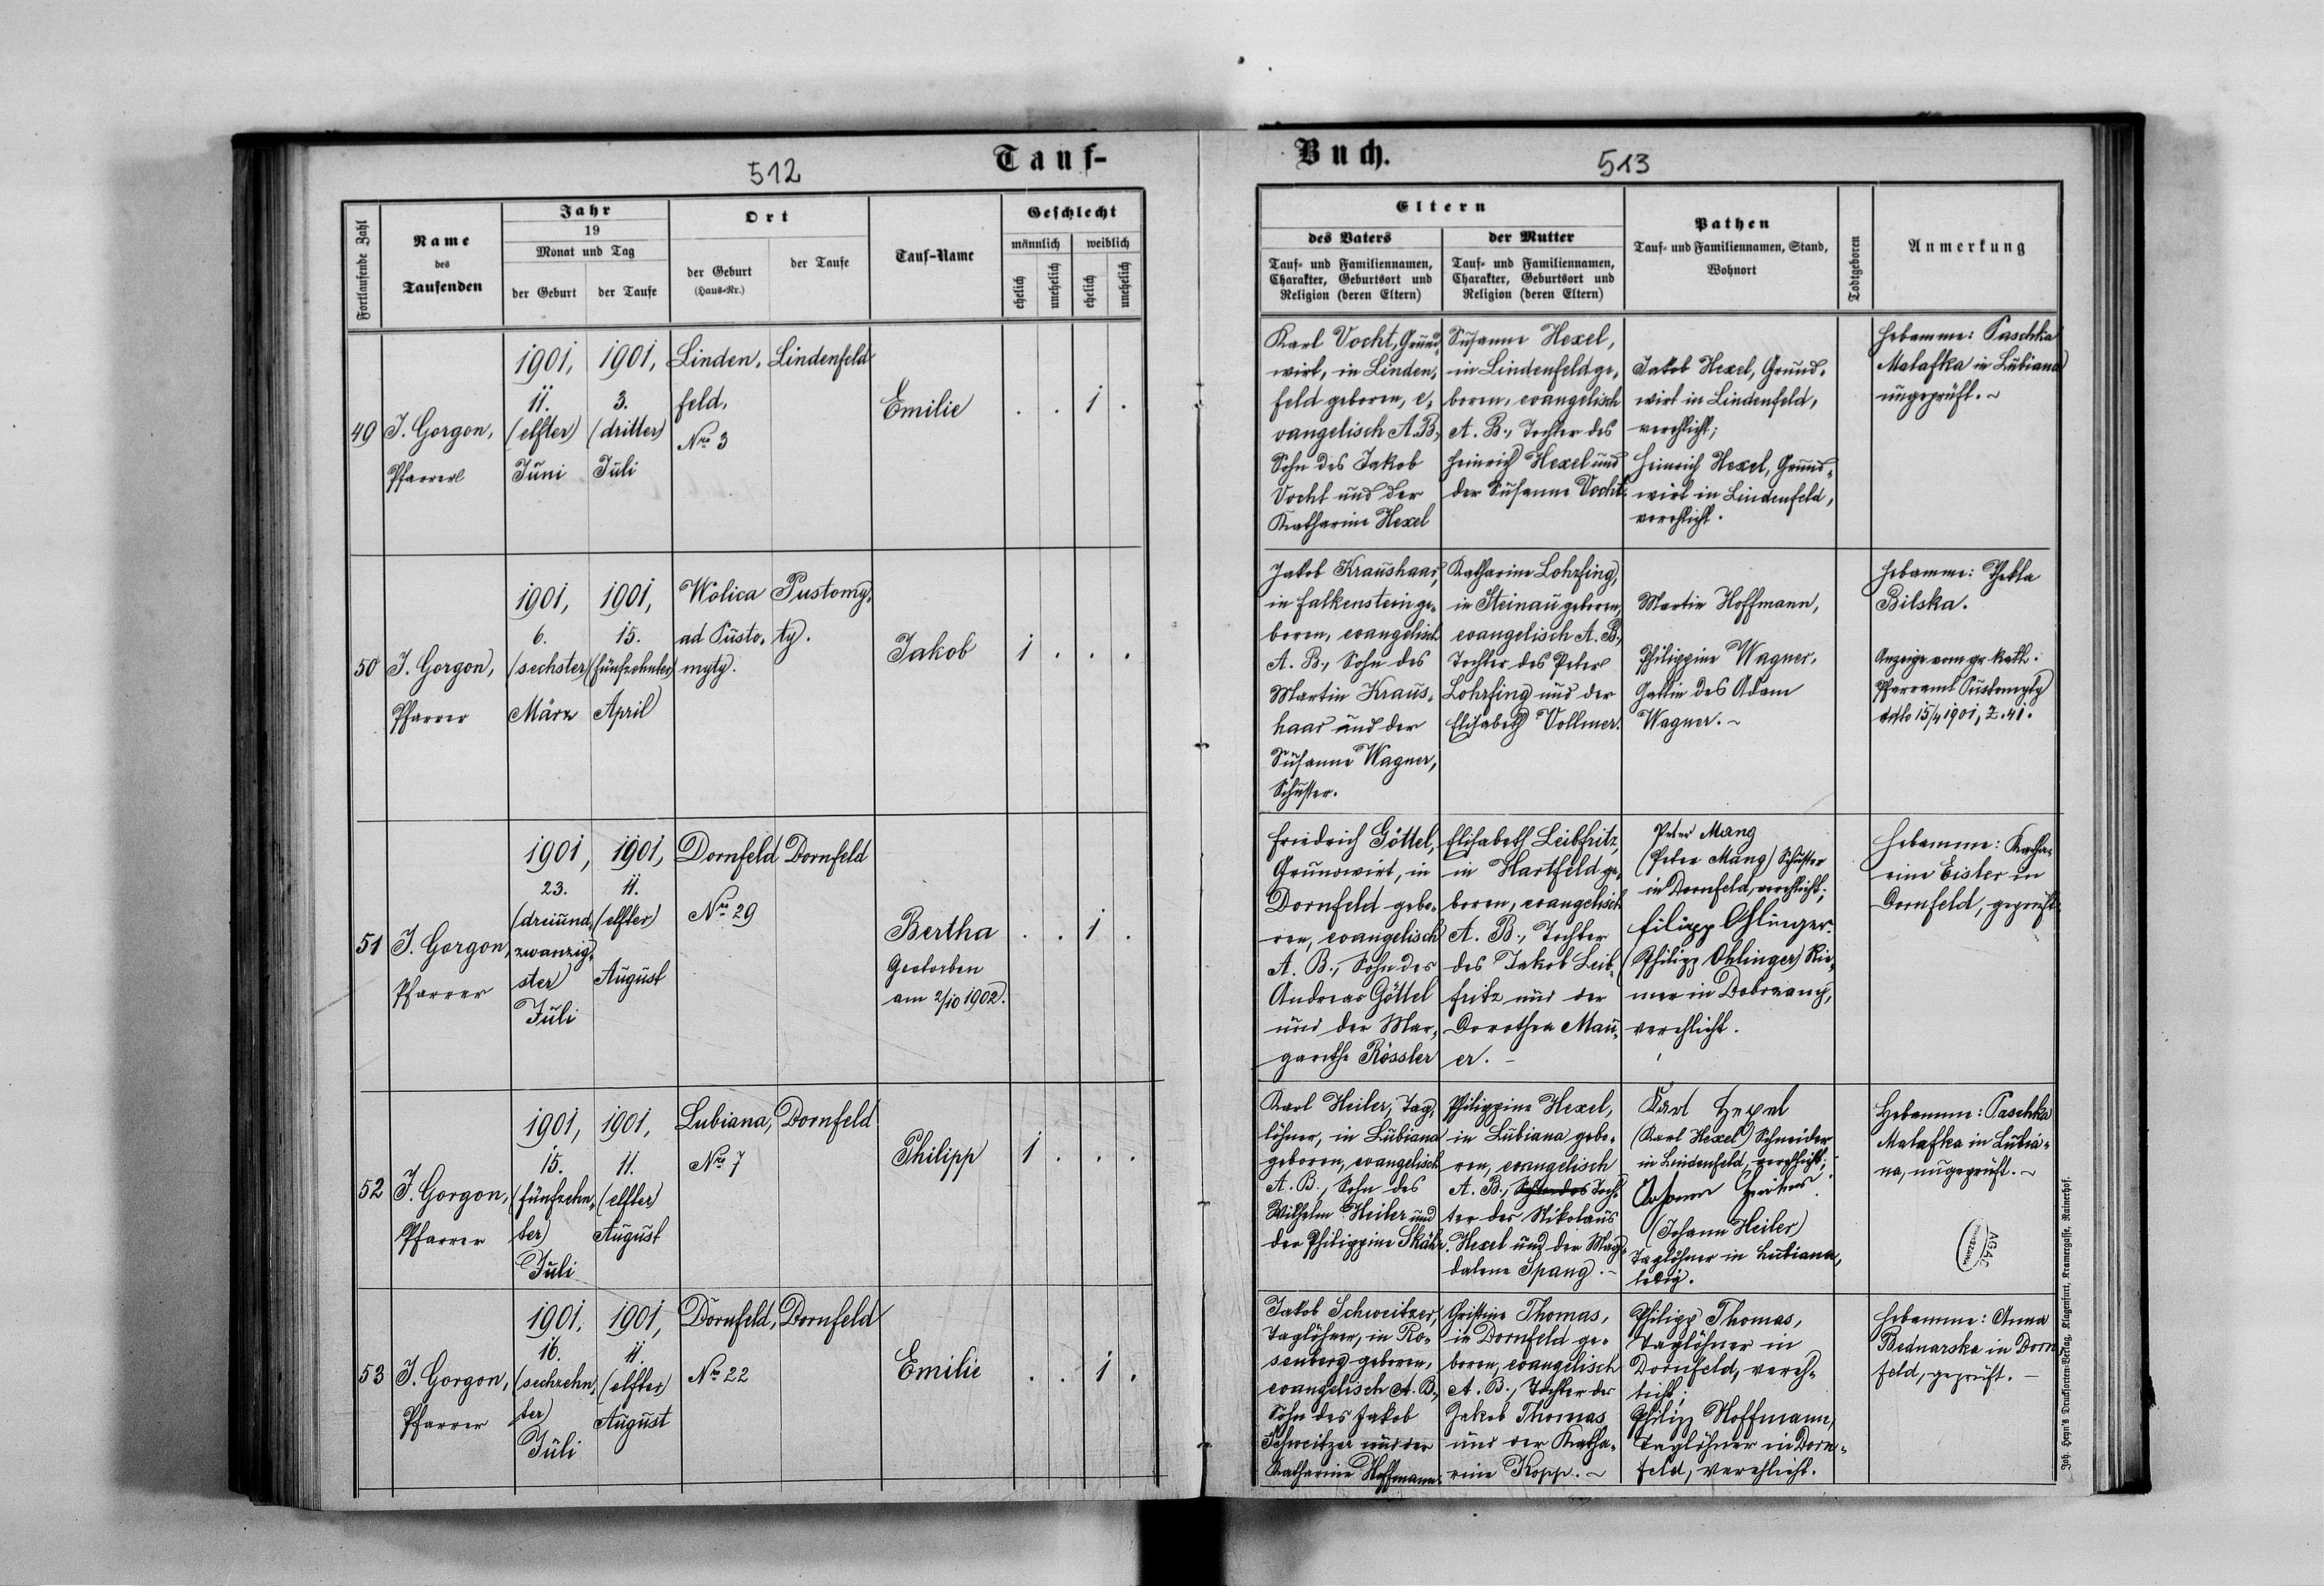 512
Tauf-
Fortlaufende Zahl
Name
des
Taufenden
Jahr
19
Monat und Tag
der Geburt
der Taufe
Ort
der Geburt
(Haus-Nr.)
der Taufe
Tauf-Name
Geschlecht
männlich
weiblich
ehelich
unehelich
ehelich
unehelich
49
J. Gorgon,
Pfarrer
1901,
11.
(elfter)
Juni
1901,
3.
(dritter)
Juli
Linden-
feld,
Nro 3
Lindenfeld
Emilie
. . 1 .
50
J. Gorgon,
Pfarrer
1901,
6.
(sechster)
März
1901,
15.
(fünfzehnter)
April
Wolica
ad Pusto-
myty.
Pustomy-
ty.
Jakob
1 . . .
51
J. Gorgon,
Pfarrer
1901,
23.
(dreiund-
zwanzig-
ster)
Juli
1901,
11.
(elfter)
August
Dornfeld
Nro 29
Dornfeld
Bertha
Gestorben
am 2/10 1902.
. . 1 .
52
J. Gorgon,
Pfarrer
1901,
15.
(fünfzehn-
ter)
Juli
1901,
11.
(elfter)
August
Lubiana,
Nro 7
Dornfeld
Philipp
1 . . .
53
J. Gorgon,
Pfarrer
1901,
16.
(sechzehn-
ter)
Juli
1901,
11.
(elfter)
August
Dornfeld,
Nro 22
Dornfeld
Emilie
. . 1 .
Buch.
513
Eltern
des Vaters
Tauf- und Familiennamen,
Charakter, Geburtsort und
Religion (deren Eltern)
der Mutter
Tauf- und Familiennamen,
Charakter, Geburtsort und
Religion (deren Eltern)
Pathen
Tauf- und Familiennamen, Stand,
Wohnort
Todtgeboren
Anmerkung
Karl Vocht, Grund-
wirt, in Linden-
feld geboren, e-
vangelisch A. B.,
Sohn des Jakob
Vocht und der
Katharine Hexel
Susanne Hexel,
in Lindenfeld ge-
boren, evangelisch
A. B., Tochter des
Heinrich Hexel und
der Susanne Vocht.
Jakob Hexel, Grund-
wirt in Lindenfeld,
verehlicht;
Heinrich Hexel, Grund-
wirt in Lindenfeld,
verehlicht.
Hebamme: Paschka
Malafka in Lubiana
ungeprüft. ~
Jakob Kraushaar,
in Falkenstein ge-
boren, evangelisch
A. B., Sohn des
Martin Kraus-
haar und der
Susanne Wagner,
Schuster.
Katharine Lohrfing,
in Steinau geboren,
evangelisch A. B.,
Tochter des Peter
Lohrfing und der
Elisabeth Vollmer.
Martin Hoffmann,
Philippine Wagner,
Gattin des Adam
Wagner. ~
Hebamme: Thekla
Bilska.
Anzeige vom gr. kath.
Pfarramt Pustomyty
ddto 15/4 1901, Z. 41.
Friedrich Göttel,
Grundwirt, in
Dornfeld gebo-
ren, evangelisch
A. B., Sohn des
Andreas Göttel
und der Mar-
garethe Rössler
Elisabeth Leibfritz,
in Hartfeld ge-
boren, evangelisch
A. B., Tochter
des Jakob Leib-
fritz und der
Dorothea Mau-
er. –
Peter Mang
(Peter Mang) Schuster
in Dornfeld, verehlicht;
Filipp Ohlinger.
(Philipp Ohlinger) Rie-
mer in Dobrzany,
verehlicht.
Hebamme: Katha-
rine Eisler in
Dornfeld, geprüft.
Karl Heiler, Tag-
löhner, in Lubiana
geboren, evangelisch
A. B., Sohn des
Wilhelm Heiler und
der Philippine Skähr.
Philippine Hexel,
in Lubiana gebo-
ren, evangelisch
A. B., Sohn des Toch-
ter des Nikolaus
Hexel und der Mag-
dalene Spang. ~
Karl Hexel
(Karl Hexel) Schneider
in Lindenfeld, verehlicht;
Johann
(Johann Heiler)
Taglöhner in Lubiana,
ledig.
Hebamme: Paschka
Malafka in Lubia-
na, ungeprüft. ~
AGAD
Jakob Schweitzer,
Taglöhner, in Ro-
senberg geboren,
evangelisch A. B.,
Sohn des Jakob
Schweitzer und der
Katharine Hoffmann.
Christine Thomas,
in Dornfeld ge-
boren, evangelisch
A. B., Tochter des
Jakob Thomas
und der Katha-
rine Kopp. ~
Philipp Thomas,
Taglöhner in
Dornfeld, vereh-
licht;
Philipp Hoffmann,
Taglöhner in Dorn-
feld, verehlicht.
Hebamme: Anna
Bednarska in Dorn-
feld, geprüft. –
Joh. Heyn's Drucksorten-Verlag, Klagenfurt, Kramergasse, Rainerhof.